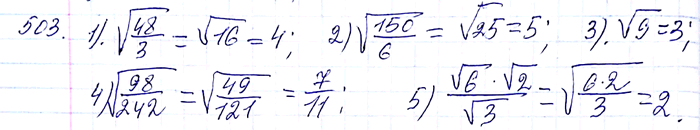 503. 1). √(48/3) = √16 = 4; 2) √(150/6) = √25 = 5; 3). √9 = 3;
4) √(98/242) = √(49/121) = 7/11; 5) (√6 · √2)/√3 = √((6·2)/3) = 2.